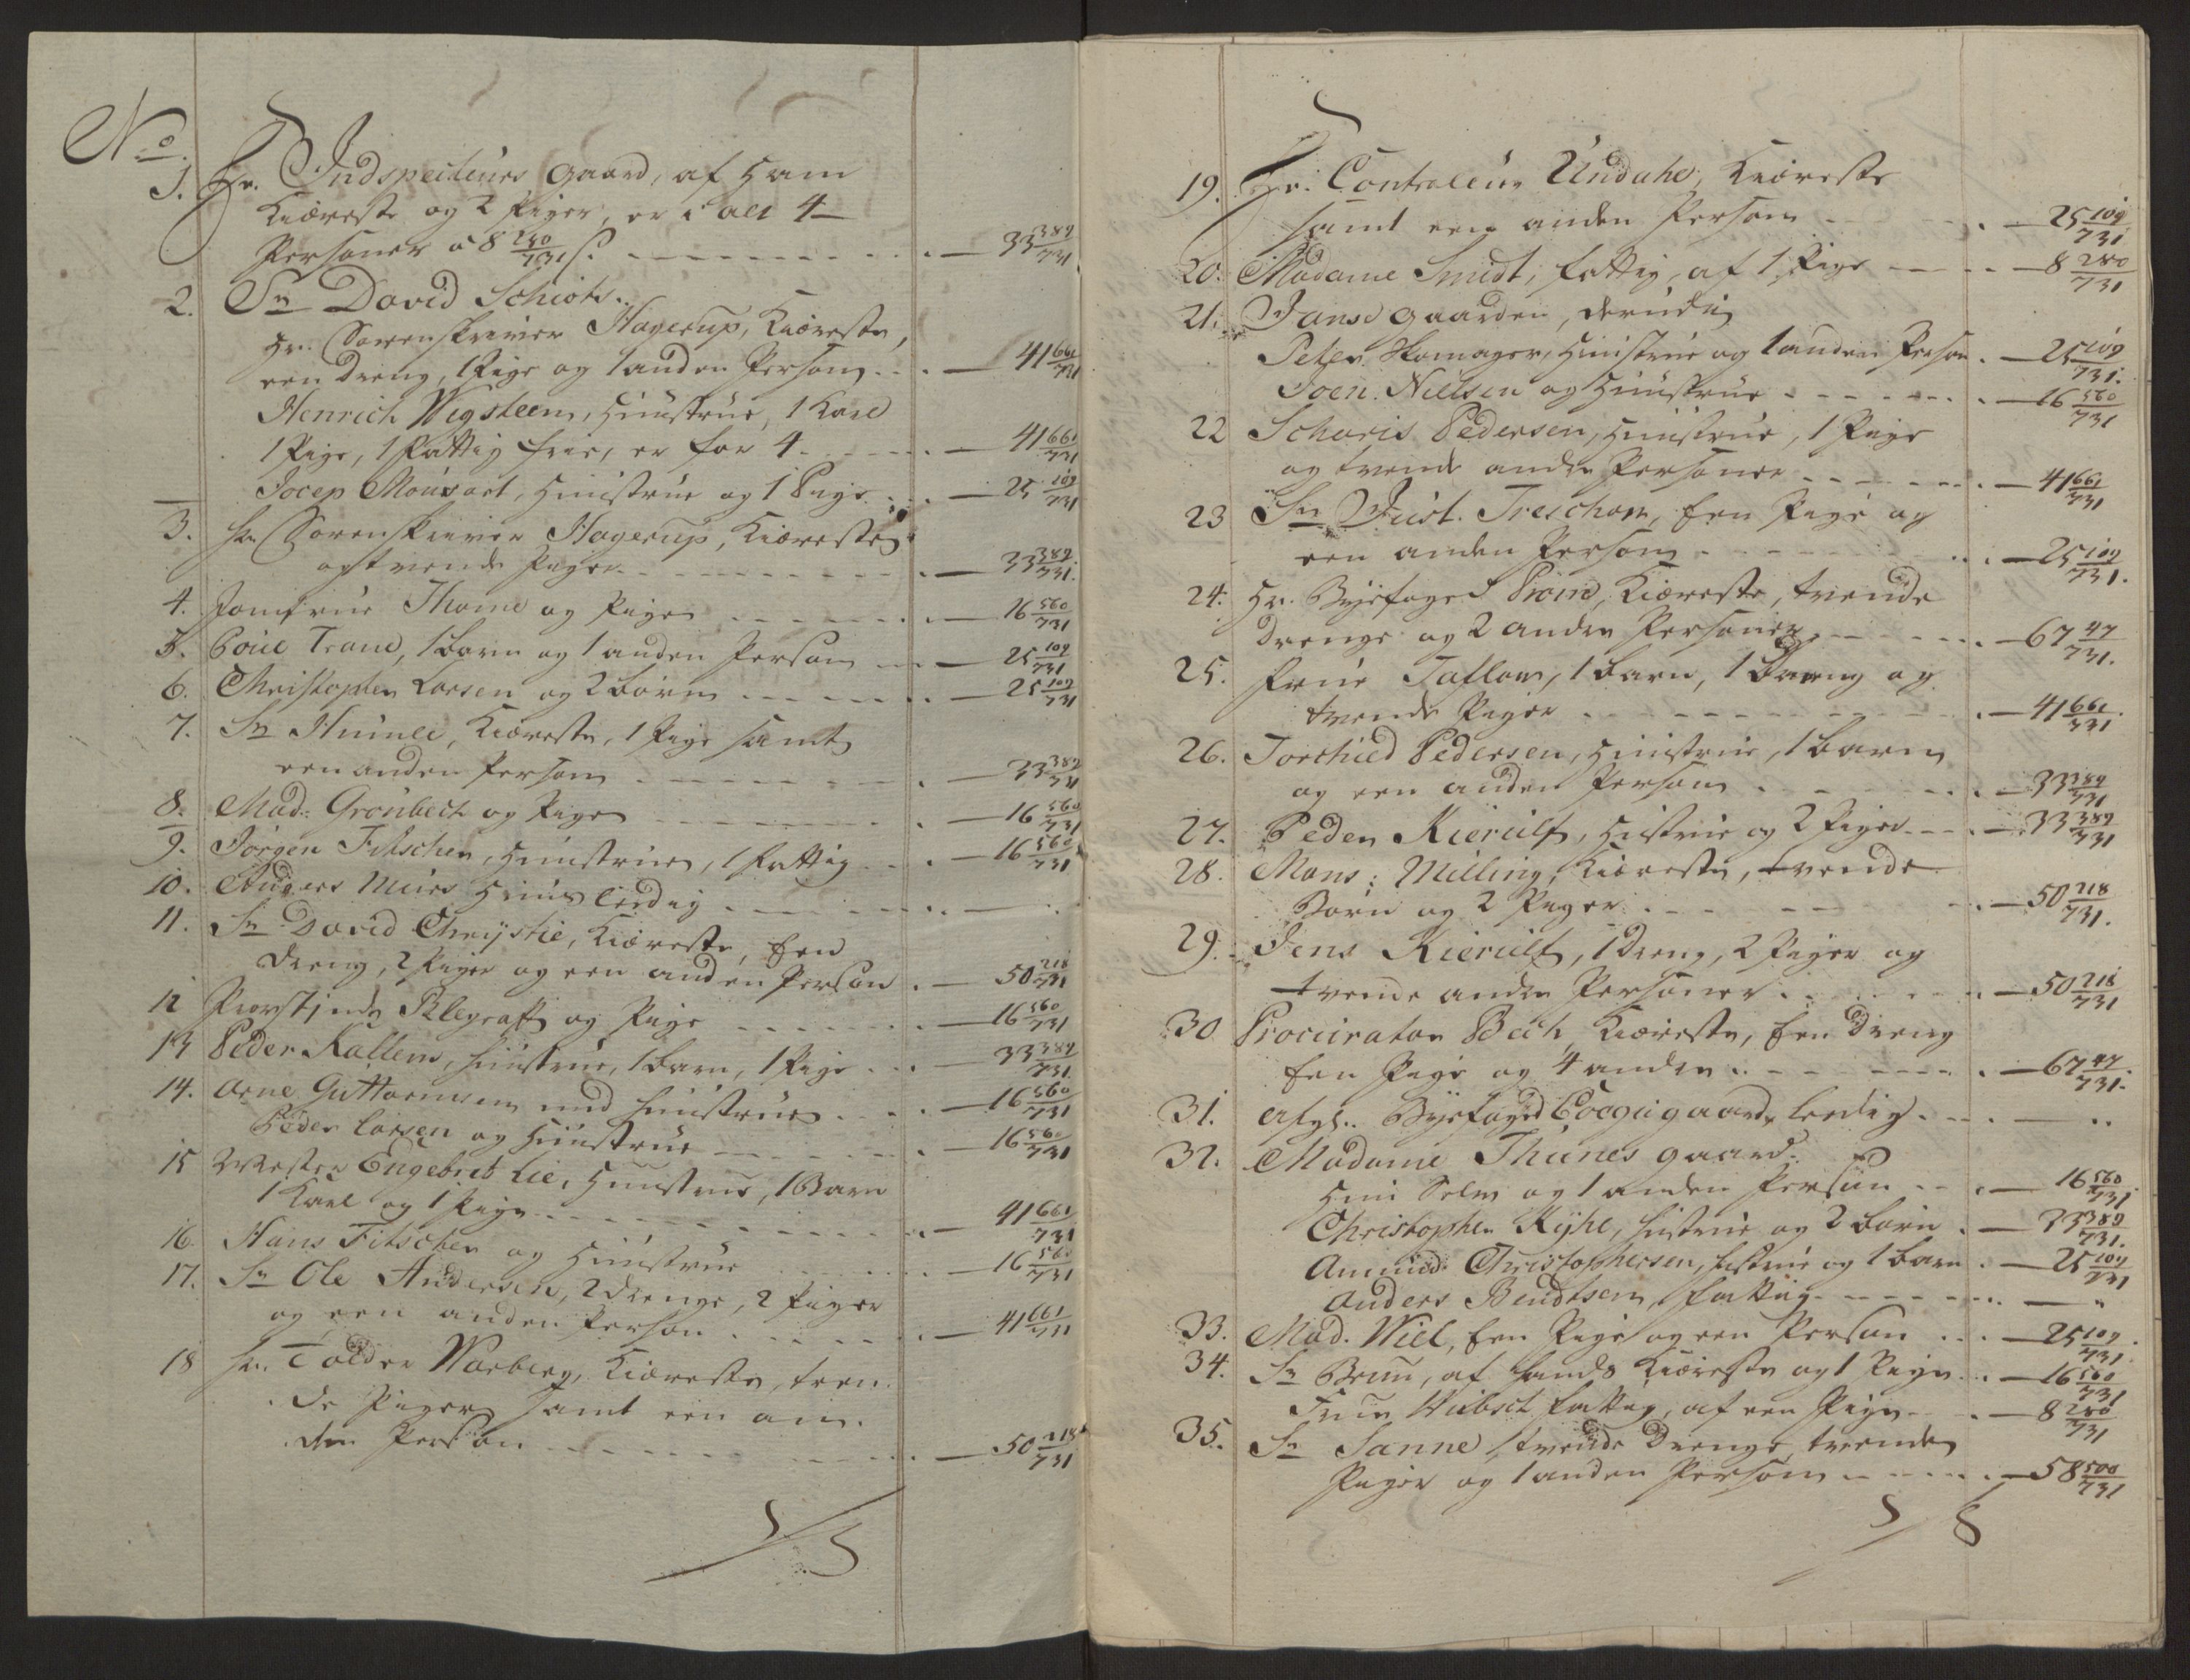 No.
1. Hr. Indspecteurs Gaard, af Ham
Kiæreste og 2 Piger, er i alt 4
Personer a 8 280/731 s. — 33 389/731
2. Sr. David Schiøts.
Hr. Sorenskriver Hagerup, Kiæreste,
een Dreng, 1 Pige og 1 anden Person — 41 661/731
Henrich Wigsteen, Huustrue, 1 Karl
1 Pige, 1 Fattig frie, er for 4 — 41 661/731
Jocep Housart, Huustrue og 1 Pige — 25 109/731
3. Hr. Sorenskriver Hagerup, Kiæreste
og tvende Piger — 33 389/731
4. Jomfrue Thome og Pige — 16 560/731
5. Poul Trane, 1 barn og 1 anden Person — 25 109/731
6. Christopher Larsen og 2 børn — 25 109/731
7. Sr. Humle, Kiæreste, 1 Pige samt
een anden Person — 33 389/731
8. Mad: Grønbech og Pige — 16 560/731
9. Jørgen Fitscher, Huustrue, 1 fattig — 16 560/731
10. Anders Muurs Huus leedig —
11. Sr. David Chrystie, Kiæreste, Een
Dreng, 2 Piger og een anden Person — 50 218/731
12 Provstinde Blegraft og Pige — 16 560/731
13 Peder Kallem, Huustrue, 1 barn, 1 Pige — 33 389/731
14. Arne Guttormsen med Huustrue — 16 560/731
Peder Larsen og Huustrue — 16 560/731
15 Mester Engebret Lie, Huustrue, 1 Barn
1 Karl og 1 Pige — 41 661/731
16. Hans Fitscher og Huustrue — 16 560/731
17. Sr. Ole Andersen, 2 Drenge, 2 Piger
og een anden Person — 41 661/731
18 Hr. Tolder Warberg, Kiæreste, tven
de Piger samt een an
den Person — 50 218/731
19. Hr. Controleur Undahl, Kiæreste
samt een anden Person — 25 109/731
20. Madame Smidt, fattig, af 1 Pige — 8 280/731
21. Jans Gaarden, derudi
Peter Skomager, Huustrue og 1 anden Person — 25 109/731
Joen Nielsen og Huustrue — 16 560/731
22 Scharis Pedersen, Huustrue, 1 Pige
og tvende andre Personer — 41 661/731
23 Sr. Just. Treschow, Een Pige og
een anden Person — 25 109/731
24. Hr. Byefoged Prom, Kiæreste, tvende
Drenge og 2 andre Personer — 67 47/731
25. Frue Taflow, 1 barn, 1 Dreng og
tvende Piger — 41 661/731
26. Torchild Pedersen, Huustrue, 1 barn
og een anden Person — 33 389/731
27. Peder Kierulf, Hustrue og 2 Piger — 33 389/731
28. Mons: Milling, Kiæreste, tvende
Børn og 2 Piger — 50 218/731
29. Jens Kierulf, 1 Dreng, 2 Piger og
tvende andre Personer — 50 218/731
30 Procurator Bech, Kiæreste, Een Dreng
Een Pige og 4 andre — 67 47/731
31. Afg. Byefoged gaard leedig —
32. Madame Thunes gaard.
Hun Selv og 1 anden Person — 16 560/731
Christopher Ryhe, Hustrue og 2 børn — 33 389/731
Amund Christophersen, Hustrue og 1 barn — 25 109/731
Anders Bendtsen, fattig — "
33. Mad. Wiel, Een Pige og een Person — 25 109/731
34. Sr. Brun, af Hands Kiæreste og 1 Pige — 16 560/731
Frue Wibsch fattig, af een Pige — 8 280/731
35. Sr. Sanne, tvende Drenge, tvende
Piger og 1 anden Person — 58 500/731